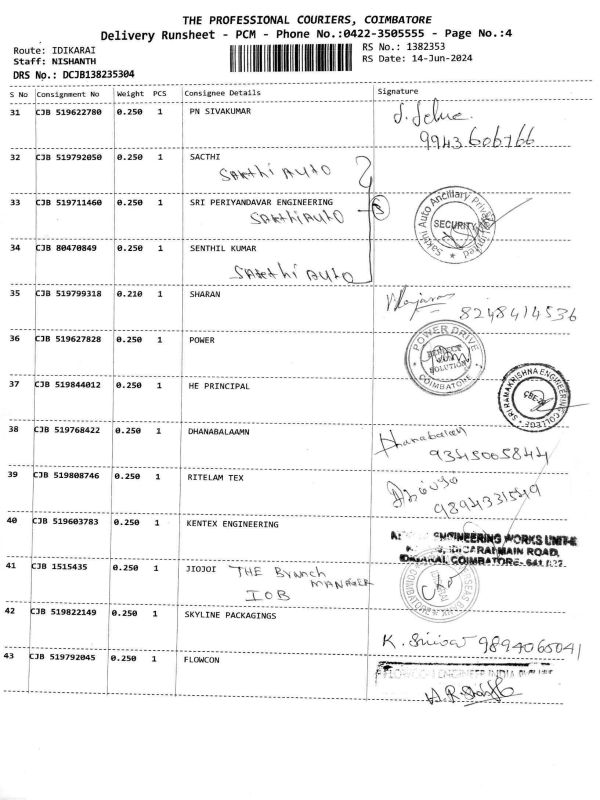 THE PROFESSIONAL COURIERS, COIMBATORE
Delivery Runsheet - PCM - Phone No.:0422-3505555 - Page No.:4
Route: IDIKARAI
Staff: NISHANTH
DRS No.: DCJB138235304
RS No.: 1382353
RS Date: 14-Jun-2024
S No Consignment No Weight PCS Consignee Details Signature
31 CJB 519622780 0.250 1 PN SIVAKUMAR
9943606766
32 CJB 519792050 0.250 1 SACTHI
Sakthi Auto
33 CJB 519711460 0.250 1 SRI PERIYANDAVAR ENGINEERING
Sakthi Auto
Sakthi Auto Ancillary Private Limited
SECURITY
34 CJB 80470849 0.250 1 SENTHIL KUMAR
Sakthi Auto
35 CJB 519799318 0.210 1 SHARAN
8248414536
36 CJB 519627828 0.250 1 POWER
POWER DRIVE
SOLUTION
COIMBATORE
37 CJB 519844012 0.250 1 HE PRINCIPAL
SRI RAMAKRISHNA ENGINEERING COLLEGE
38 CJB 519768422 0.250 1 DHANABALAAMN
Dhanabalan
9345005844
39 CJB 519808746 0.250 1 RITELAM TEX
9894331549
40 CJB 519603783 0.250 1 KENTEX ENGINEERING
ENGINEERING WORKS UNIT-II
MAIN ROAD,
IDIKARAI, COIMBATORE-
41 CJB 1515435 0.250 1 JIOJOI THE Branch
MANAGER
IOB
42 CJB 519822149 0.250 1 SKYLINE PACKAGINGS
9894065041
43 CJB 519792045 0.250 1 FLOWCON
ENGINEER INDIA